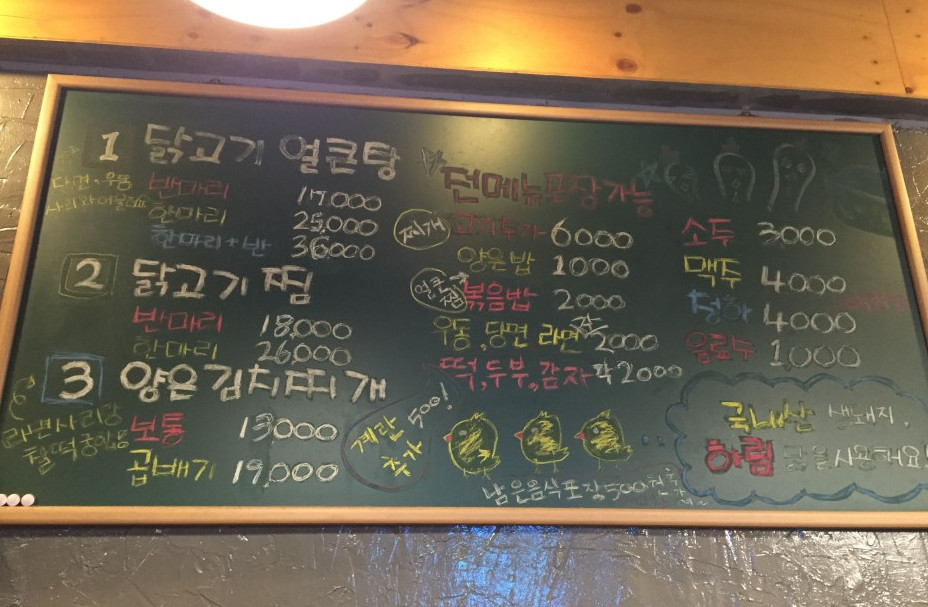 1 닭고기 얼큰탕
당면·우동
사리와 어울려요
반마리 17,000
한마리 25,000
한마리+반 36,000
2 닭고기 찜
반마리 18,000
한마리 26,000
3 양은김치찌개
라면사리랑
찰떡궁합
보통 13,000
곱배기 19,000
전메뉴포장가능
찌개 고기추가 6000
양은밥 1000
얼큰 찜 볶음밥 2000
우동, 당면 라면 2000
떡, 두부, 감자 각 2000
계란 500!
추가
남은음식포장500원
소주 3000
맥주 4000
청하 4000
음료수 1,000
국내산 생돼지,
하림 닭을 사용해요